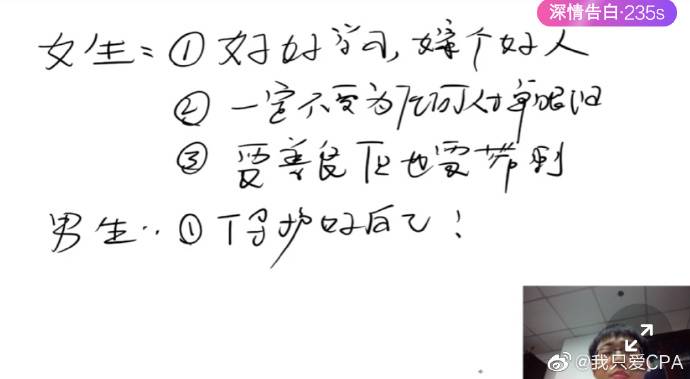 深情告白·235s
女生:① 好好学习,嫁个好人
② 一定不要为任何人掉眼泪
③ 要善良但也要带刺
男生:① 保护好自己!
@我只爱CPA